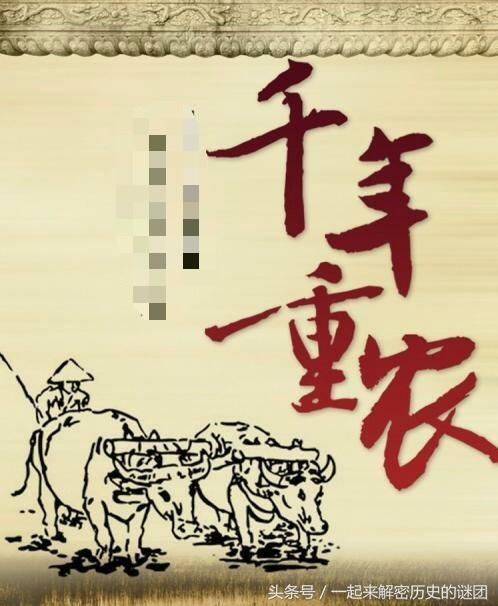 千年
重农
头条号／一起来解密历史的谜团